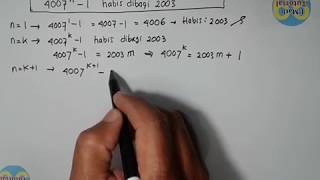 4007ⁿ-1 habis dibagi 2003
n=1 → 4007¹-1 = 4007-1 = 4006 → Habis : 2003
n=k → 4007ᵏ-1 habis dibagi 2003
4007ᵏ-1 = 2003 m → 4007ᵏ = 2003m + 1
n=k+1 → 4007ᵏ⁺¹ -